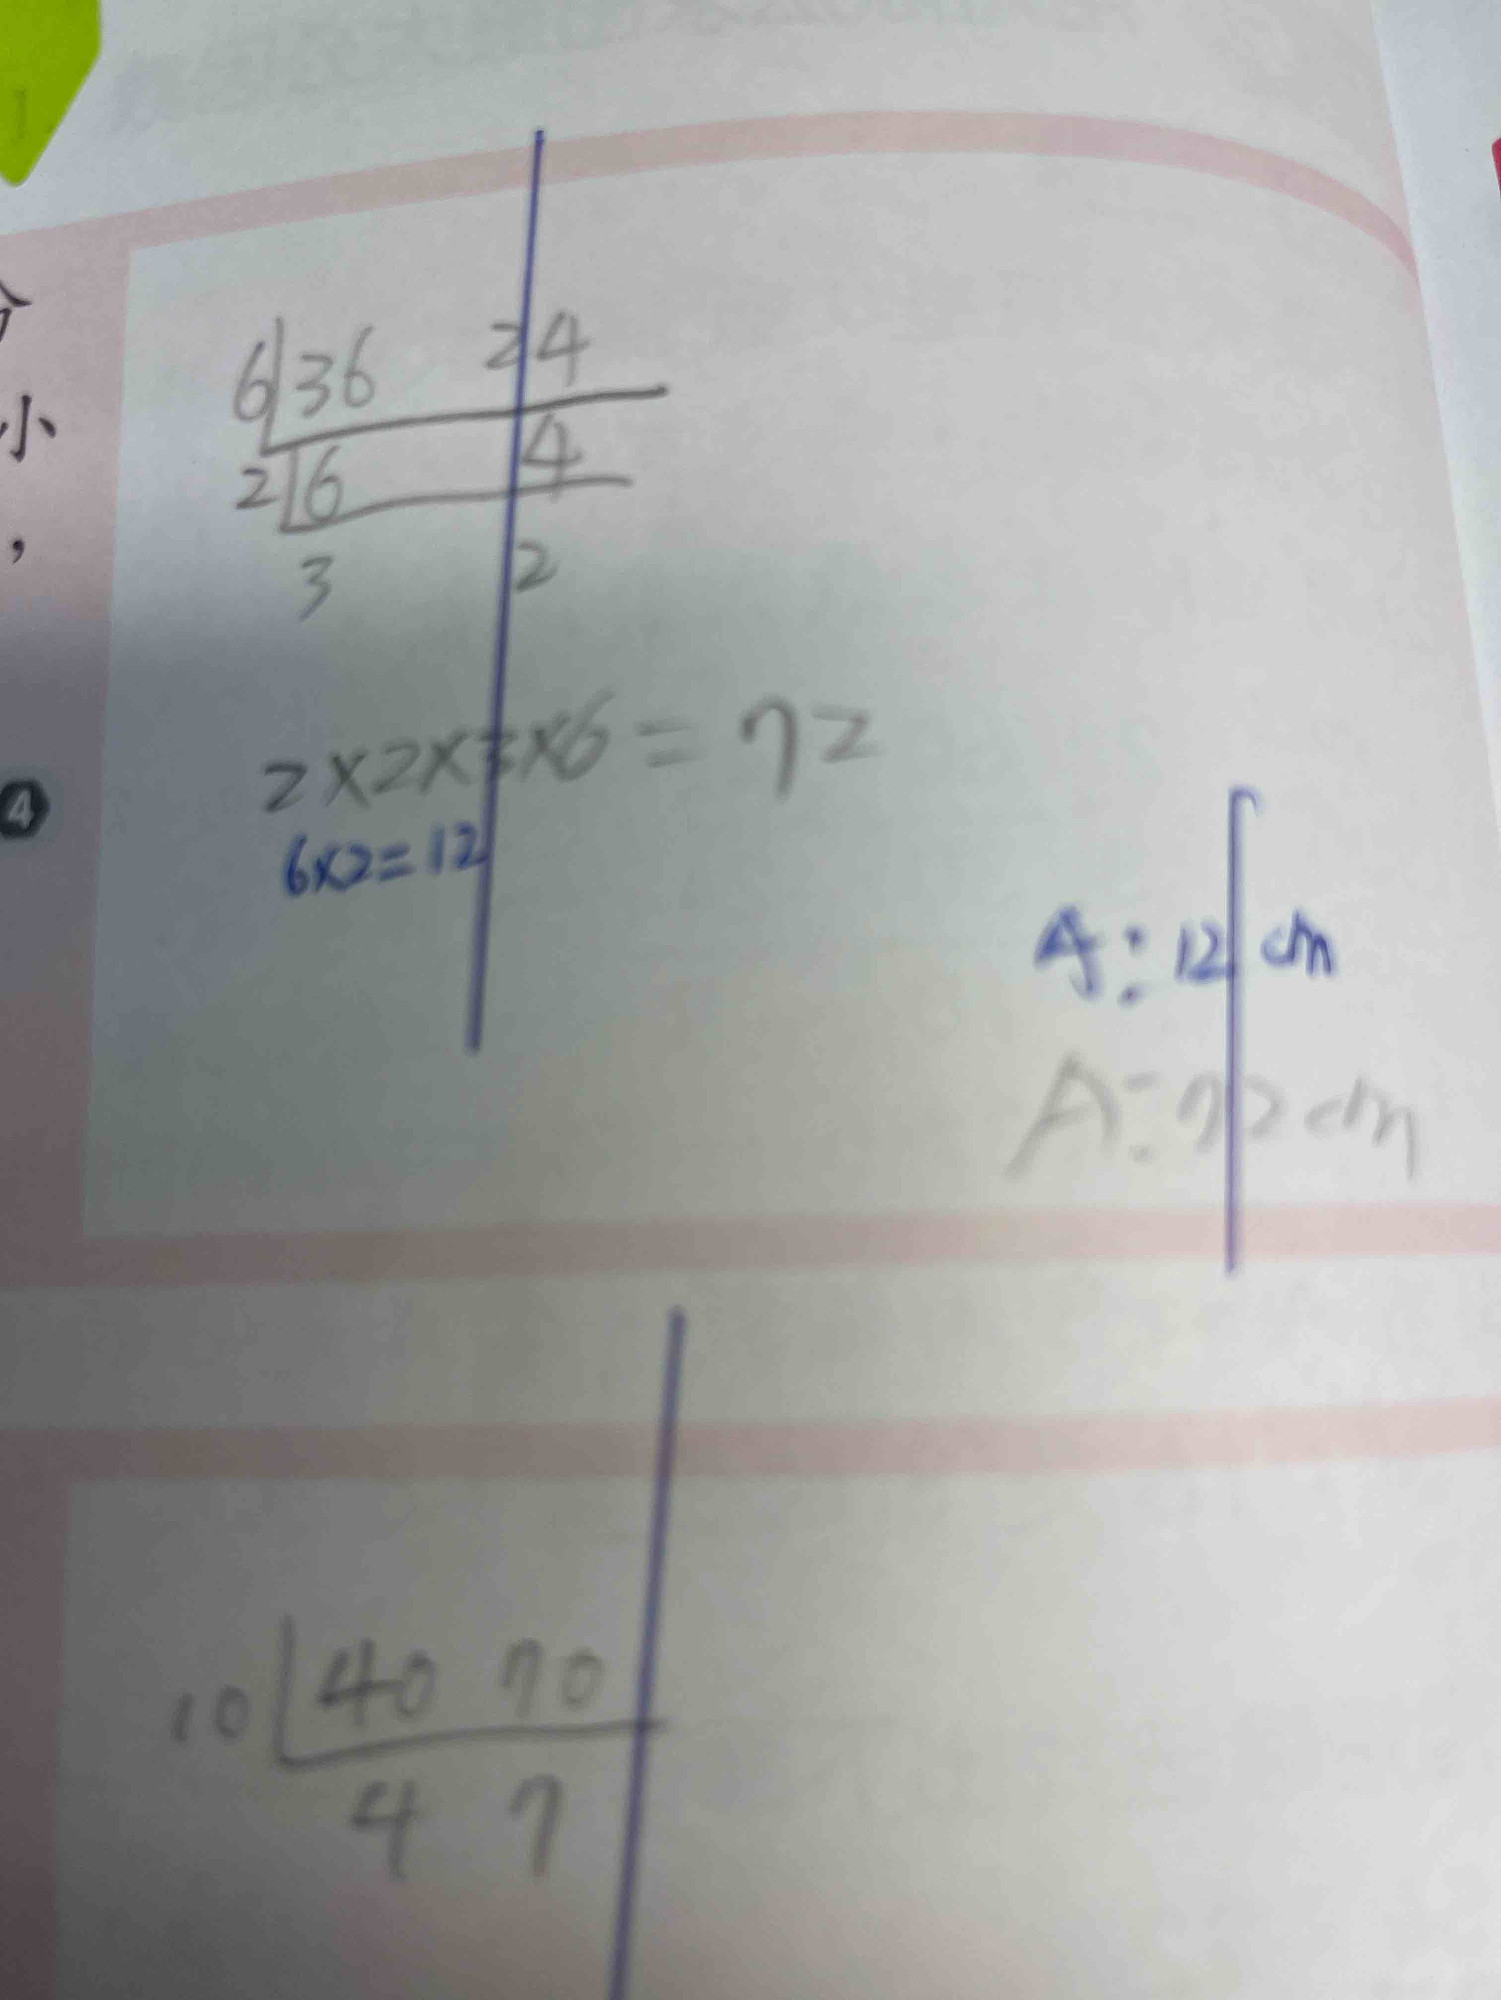 小
，
6 36 24
2 6 4
3 2
2×2×3×6=72
6×2=12
4
A: 12 cm
A: 72 cm
10 40 70
4 7